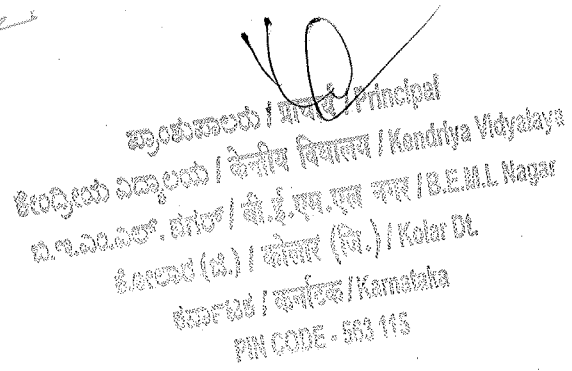 ಪ್ರಾಂಶುಪಾಲರು / प्राचार्य / Principal
ಕೇಂದ್ರೀಯ ವಿದ್ಯಾಲಯ / केन्द्रीय विद्यालय / Kendriya Vidyalaya
ಬಿ.ಇ.ಎಂ.ಎಲ್. ನಗರ್ / बी.ई.एम.एल नगर / B.E.M.L Nagar
ಕೋಲಾರ (ಜಿ.) / कोलार (जि.) / Kolar Dt.
ಕರ್ನಾಟಕ / कर्नाटक / Karnataka
PIN CODE - 563 115